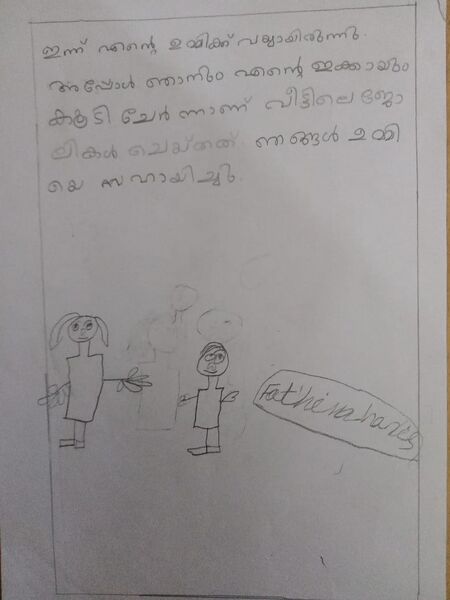 ഇന്ന് എന്റെ ഉമ്മിക്ക് വയ്യായിരുന്നു.
അപ്പോൾ ഞാനും എന്റെ ഇക്കായും
കൂടി ചേർന്നാണ് വീട്ടിലെ ജോ
ലികൾ ചെയ്തത്. ഞങ്ങൾ ഉമ്മി
യെ സഹായിച്ചു.